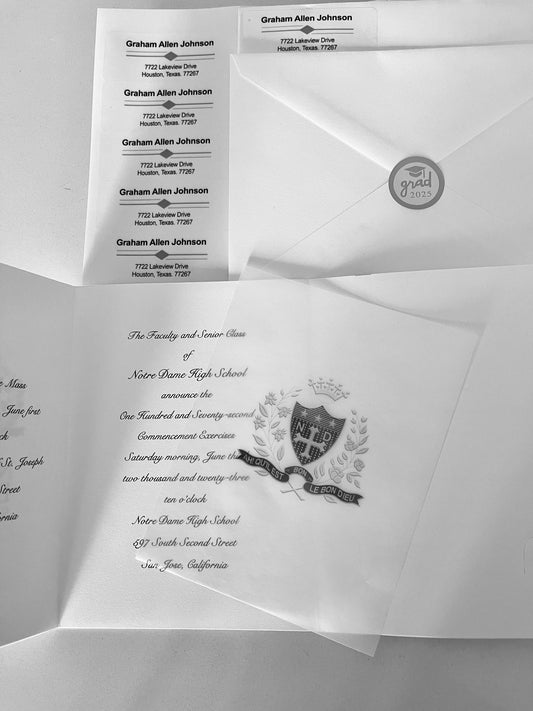 Graham Allen Johnson
7722 Lakeview Drive
Houston, Texas. 77267
Graham Allen Johnson
7722 Lakeview Drive
Houston, Texas. 77267
Graham Allen Johnson
7722 Lakeview Drive
Houston, Texas. 77267
Graham Allen Johnson
7722 Lakeview Drive
Houston, Texas. 77267
Graham Allen Johnson
7722 Lakeview Drive
Houston, Texas. 77267
Graham Allen Johnson
7722 Lakeview Drive
Houston, Texas. 77267
grad
2025
Mass
June first
St. Joseph
Street
The Faculty and Senior Class
of
Notre Dame High School
announce the
One Hundred and Seventy-second
Commencement Exercises
Saturday morning, June
two thousand and twenty-three
ten o'clock
Notre Dame High School
597 South Second Street
San Jose, California
N D
AH! QU'IL EST
BON
LE BON DIEU